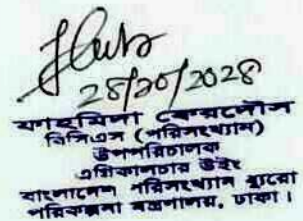 ২৪/১০/২০২৪
ফেরদৌস
বিসিএস (পরিসংখ্যান)
উপপরিচালক
এগ্রিকালচার উইং
বাংলাদেশ পরিসংখ্যান ব্যুরো
পরিকল্পনা মন্ত্রণালয়, ঢাকা।